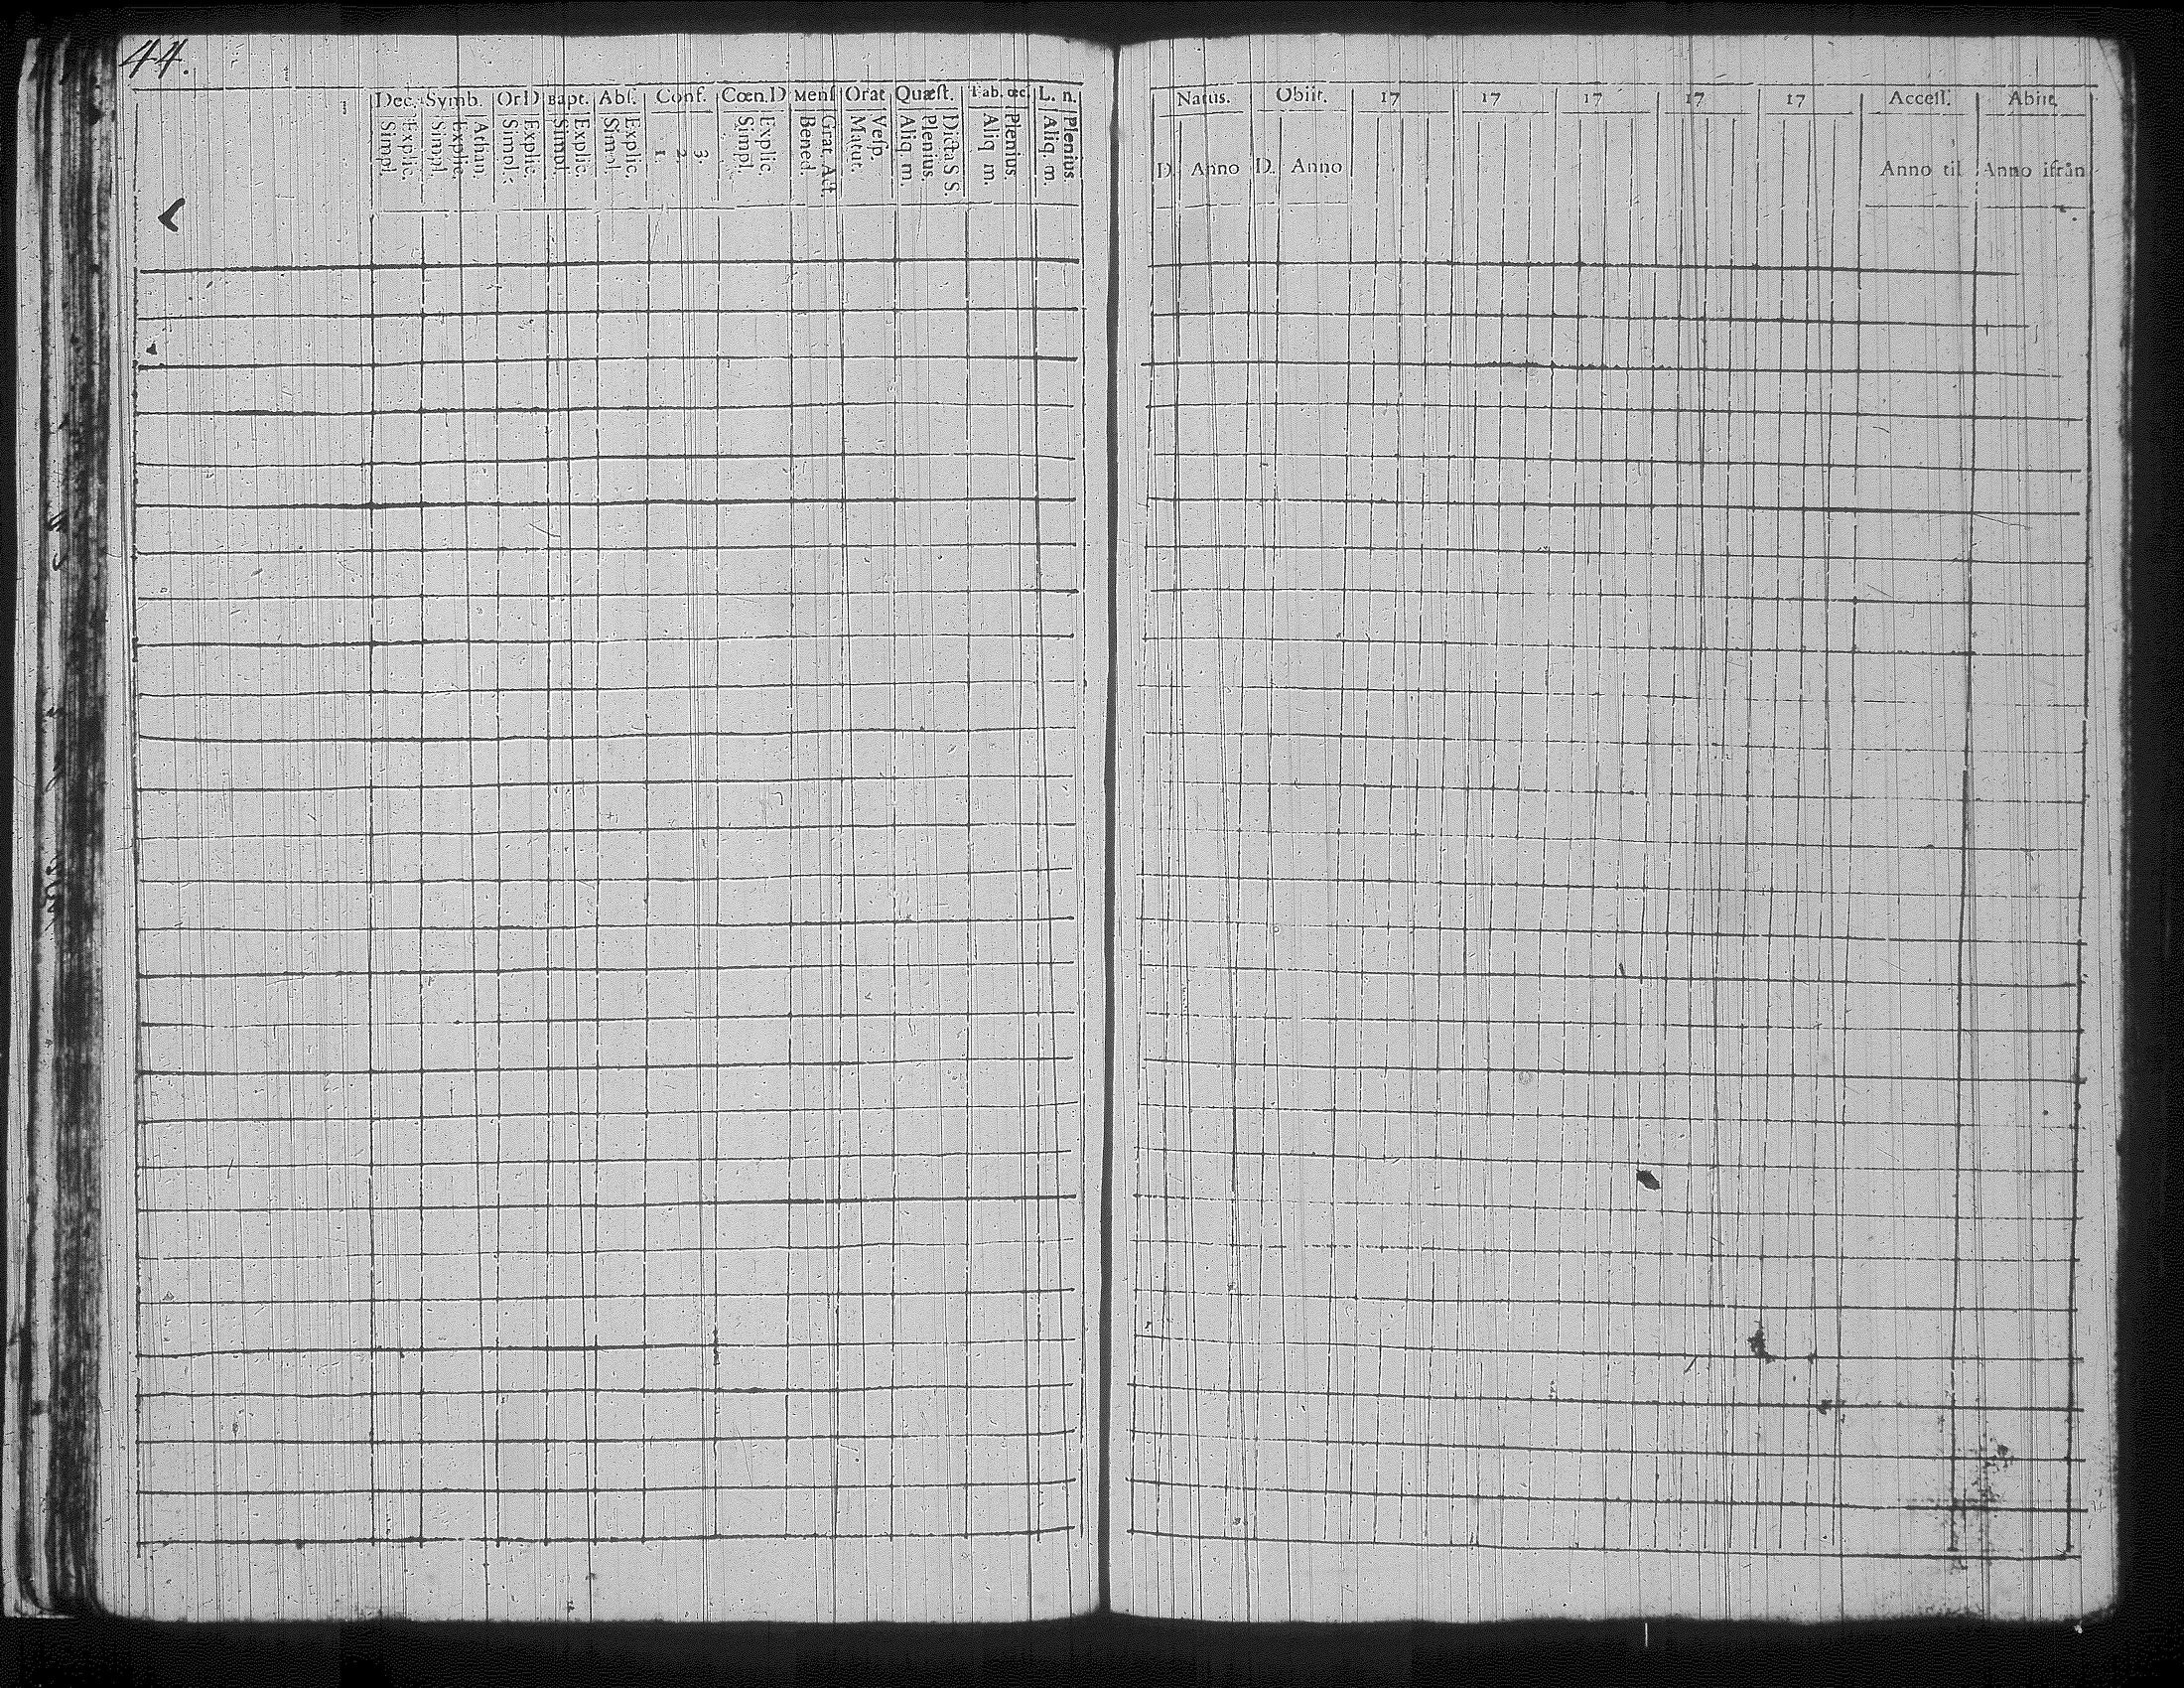 44.
Dec. Symb. Or.D Bapt. Abſ. Conf. Cœn.D Menſ Orat Quæſt. Tab. œc. L. n.
Simpl. Explic. Simpl. Explic. Athan. Simpl. Explic. Simpl. Explic. Simpl. Explic. 1. 2. 3. Simpl. Explic. Bened. Grat. Act. Matut. Veſp. Aliq. m. Plenius. Dicta S S. Aliq. m. Plenius. Aliq. m. Plenius.
Natus. Obiit. 17 17 17 17 17 Acceſſ. Abiit
D. Anno D. Anno Anno til Anno ifrån